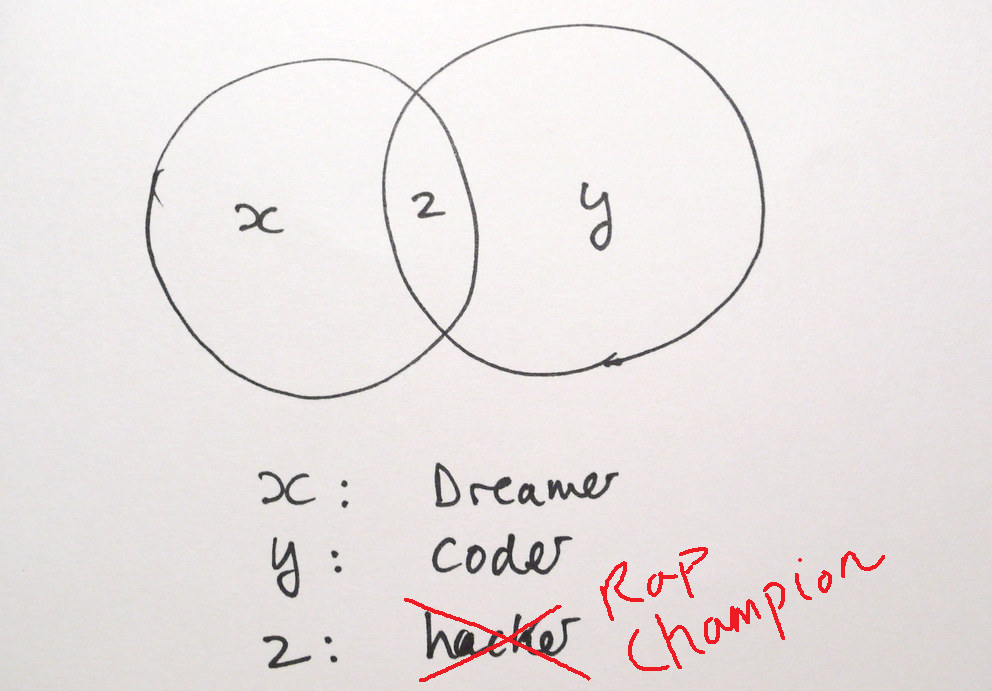 x z y
x: Dreamer
y: coder
z: hacker Rap
Champion